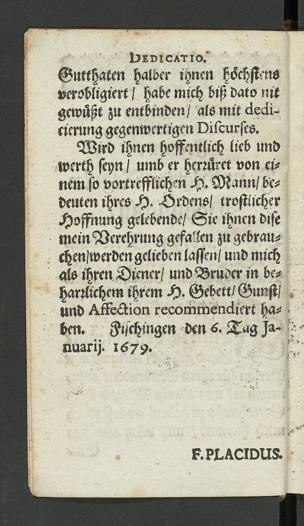 DEDICATIO.
Gutthaten halber ihnen höchstens
verobligiert / habe mich biß dato nit
gewüßt zu entbinden / als mit dedi-
cierung gegenwertigen Discurses.
Wird ihnen hoffentlich lieb und
werth seyn / umb er herrüret von ei-
nem so vortrefflichen H. Mann / be-
deuten ihres H. Ordens / trostlicher
Hoffnung gelebende / Sie ihnen dise
mein Verehrung gefallen zu gebrau-
chen / werden gelieben lassen / und mich
als ihren Diener / und Bruder in be-
harrlichem ihrem H. Gebett / Gunst /
und Affection recommendiert ha-
ben. Fischingen den 6. Tag Ja-
nuarij. 1679.
F. PLACIDUS.